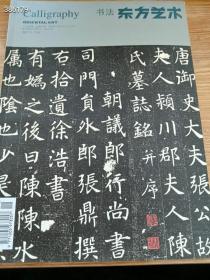 Calligraphy
ORIENTAL ART
书法
东方艺术
唐御史大
夫人潁川郡夫人陳
氏墓誌銘 并序
朝議郎行尚書
司門貟外郎張鼎撰
右拾遺徐浩書
有媯之後曰陳陳
屬也陰也少